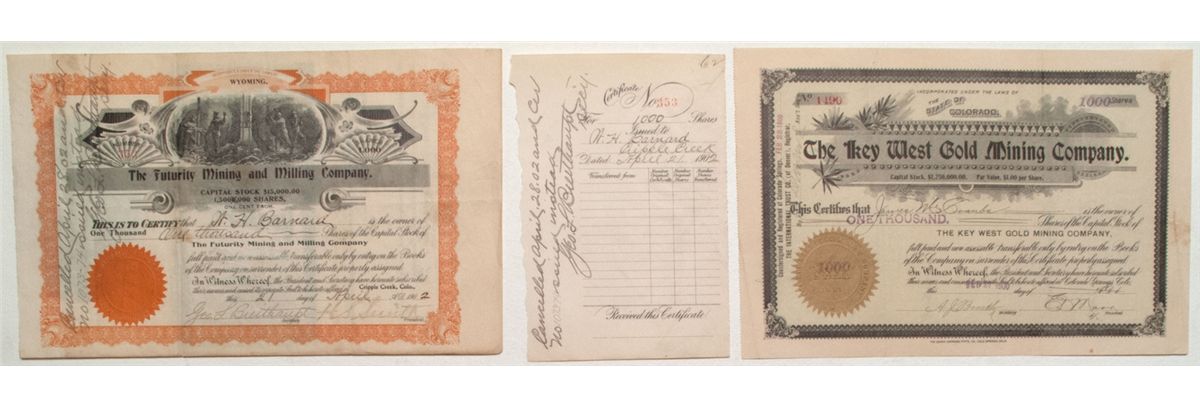 WYOMING.
1,000
The Futurity Mining and Milling Company.
CAPITAL STOCK $15,000.00
1,500,000 SHARES,
ONE CENT EACH.
THIS IS TO CERTIFY that W. H. Barnard is the owner of
One Thousand One thousand Shares of the Capital Stock of
The Futurity Mining and Milling Company
full paid and non assessable, transferable only by entry on the Books
of the Company on surrender of this Certificate properly assigned.
In Witness Whereof, the President and Secretary have hereunto subscribed
their names and caused its corporate Seal to be hereto affixed at Cripple Creek, Colo.,
this 21 day of April 1902
Geo. S. Breithaupt
Secretary President
Cancelled April 28.02 and
Certificate
No 353
For 1,000 Shares
Issued to
W. H. Barnard
Cripple Creek
Dated April 21 1902
Transferred from
Number Original Certificate
Number Original Shares
Number Shares Transferred
Received this Certificate
Cancelled April 28.02 and Cer
issued instead
Geo. S. Breithaupt
Secy.
62
INCORPORATED UNDER THE LAWS OF
THE STATE OF COLORADO.
No 1490
1000 Shares
The Key West Gold Mining Company.
Capital Stock, $1,750,000.00. Par Value, $1.00 per Share.
This Certifies that is the owner of
ONE THOUSAND. Shares of the Capital Stock of
THE KEY WEST GOLD MINING COMPANY,
full paid and non assessable, transferable only by entry on the Books
of the Company on surrender of this Certificate properly assigned.
In Witness Whereof, the President and Secretary have hereunto subscribed
their names and caused its corporate Seal to be hereto affixed at Colorado Springs, Colo.
this day of
Secretary President
1000